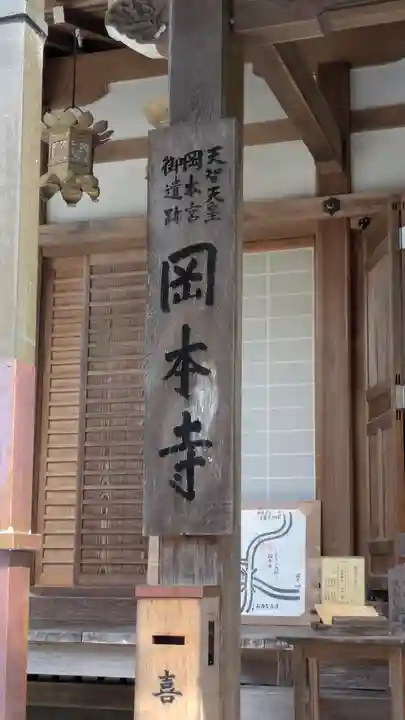 天智天皇
岡本宮
御遺跡
岡本寺
喜